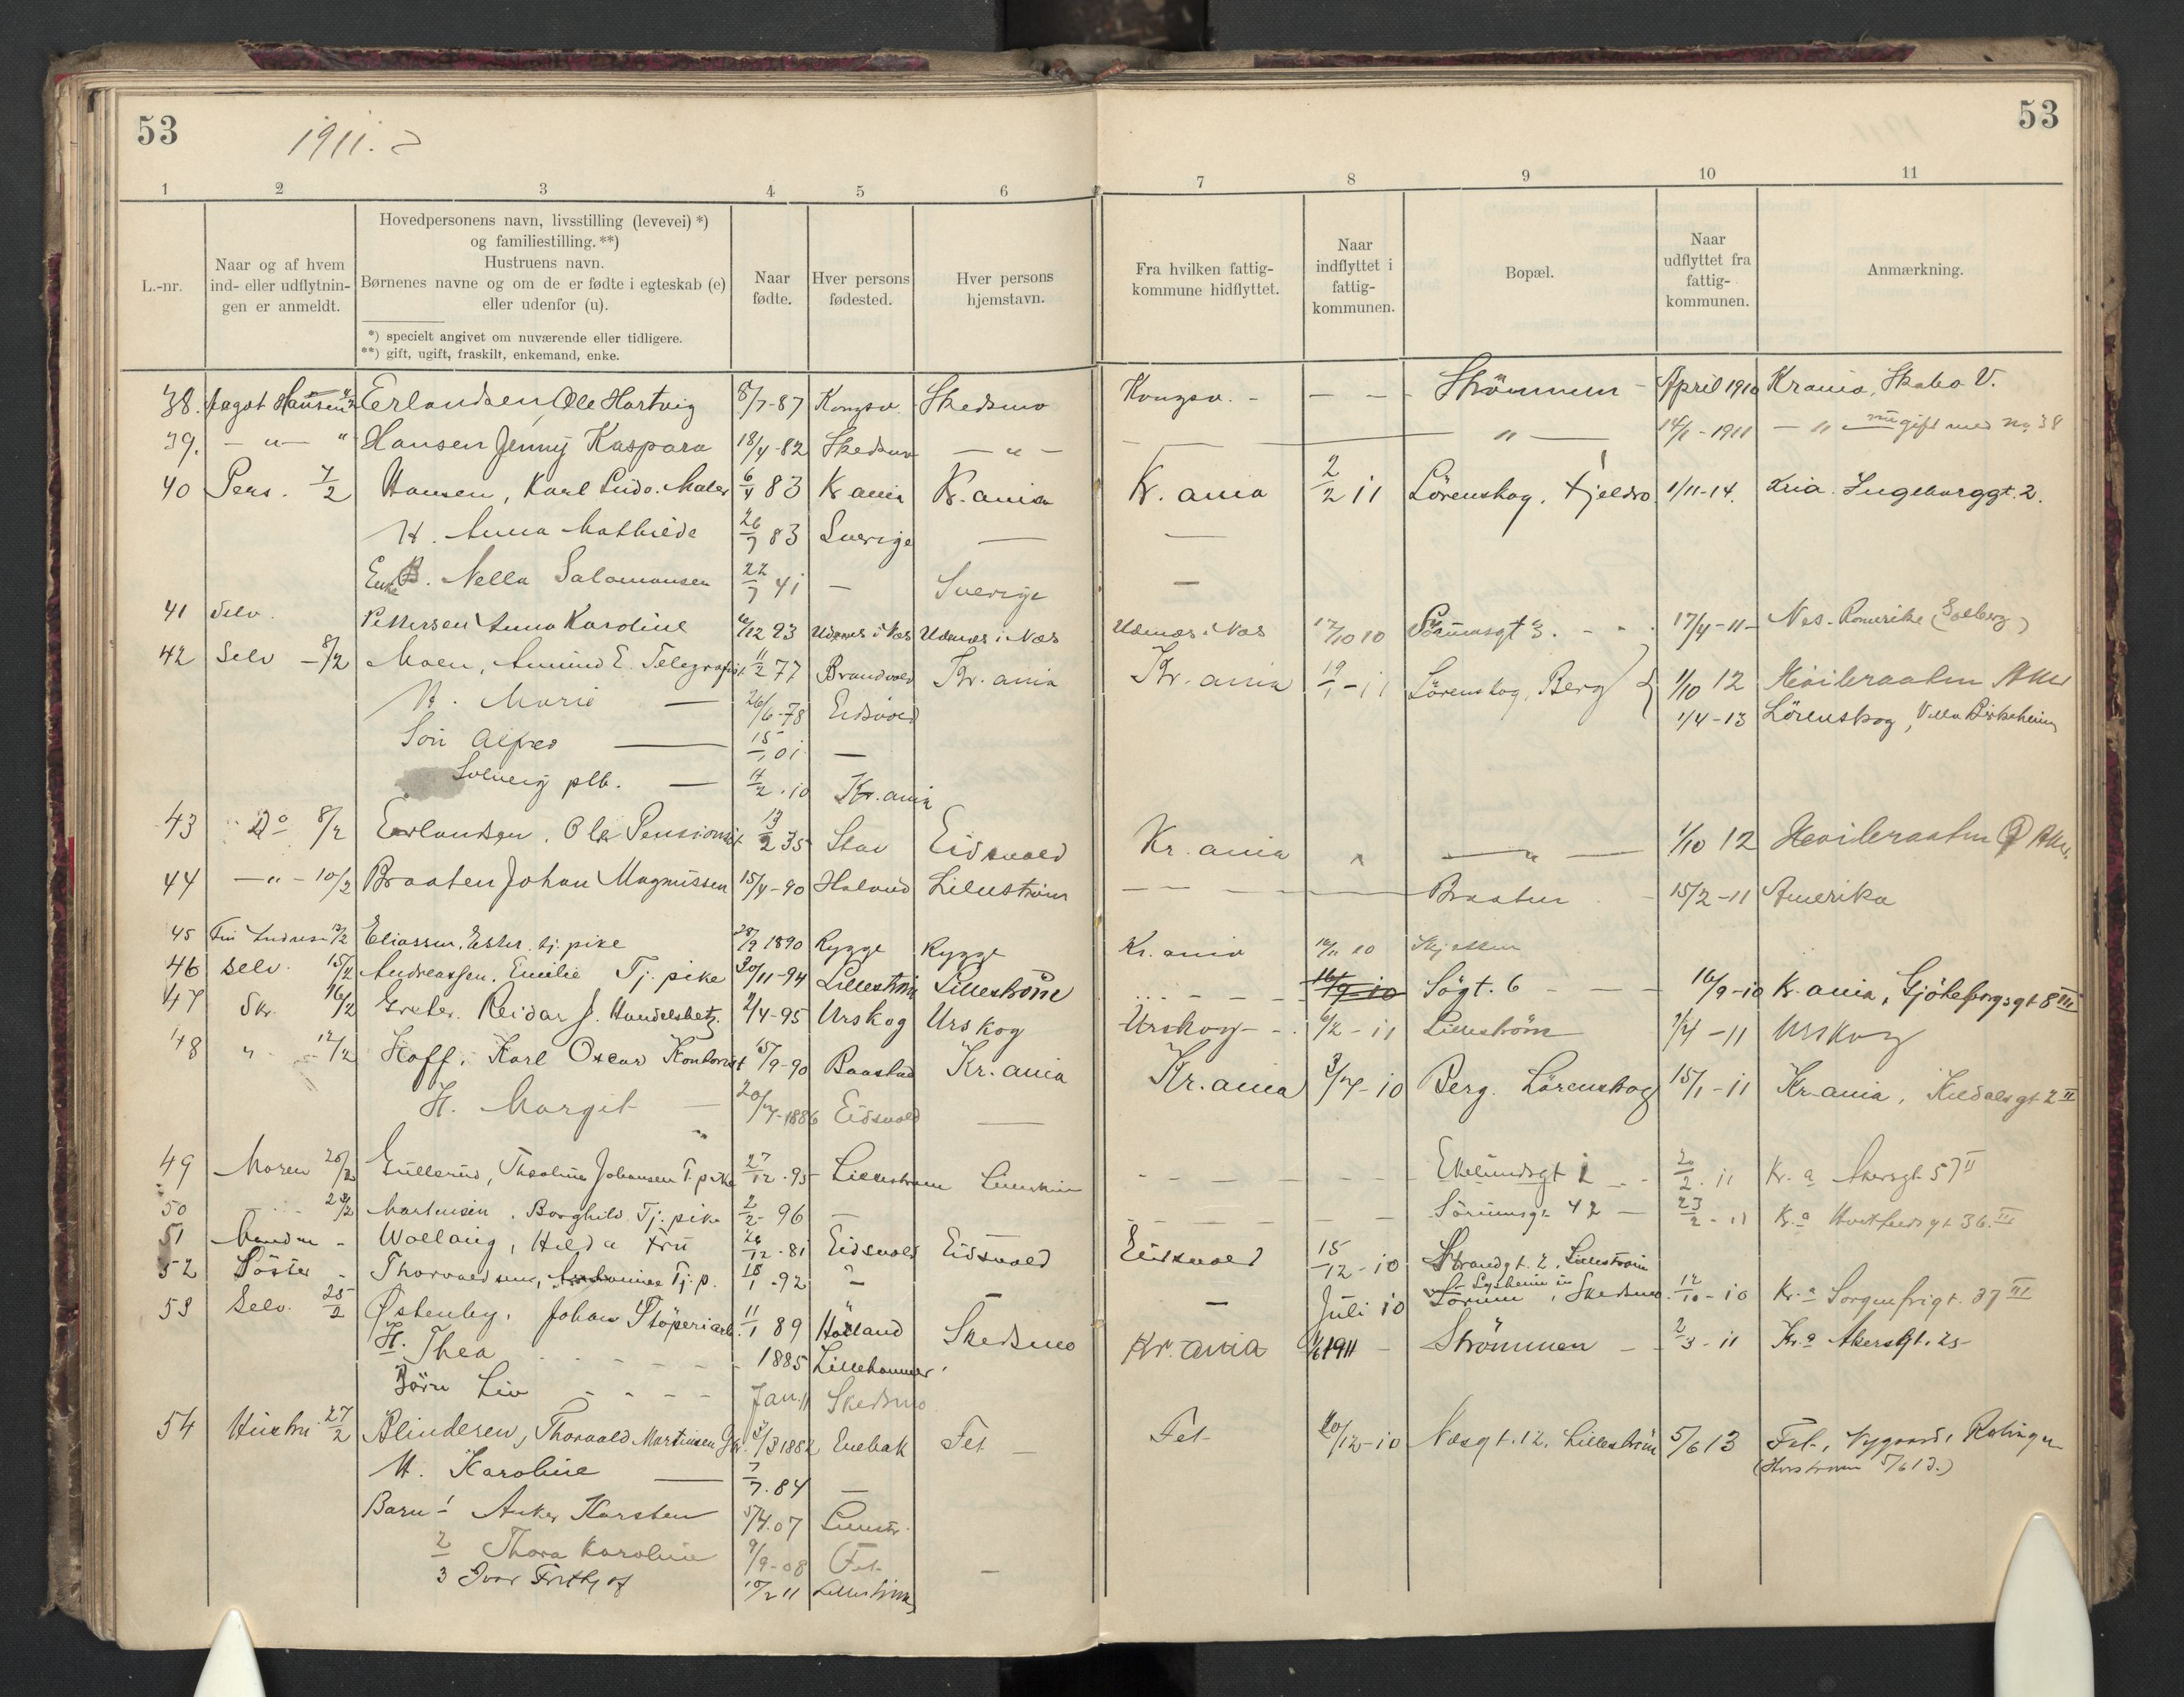 53
53
1911.
1 2 3 4 5 6 7 8 9 10 11
L.-nr.
Naar og af hvem
ind- eller udflytnin-
gen er anmeldt.
Hovedpersonens navn, livsstilling (levevei) *)
og familiestilling. **)
Hustruens navn.
Børnenes navne og om de er fødte i egteskab (e)
eller udenfor (u).
*) specielt angivet om nuværende eller tidligere.
**) gift, ugift, fraskilt, enkemand, enke.
Naar
fødte.
Hver persons
fødested.
Hver persons
hjemstavn.
Fra hvilken fattig-
kommune hidflyttet.
Naar
indflyttet i
fattig-
kommunen.
Bopæl.
Naar
udflyttet fra
fattig-
kommunen.
Anmærkning.
38. Hansen Erlandsen, Ole Hartvig 8/7-87 Kongsv. Skedsmo Kongsv. - — — Strömmen - April 1910 Krania, Skabo V.
39. — " — " Hansen Jenny Kaspara 18/4-82 Skedsmo — " — — — " — 14/1-1911 — " — gift med No 38
40 Pers. 7/2 Hansen, Karl Ludv. Maler 6/4 83 Kr ania Kr. ania Kr. ania 2/2 11 Lörenskog, Fjeldbo 1/11-14. Kria. Ingeborggt. 2.
H. Anna Mathilde 26/7 83 Sverige — —
Enke Nella Salamonsen 22/7 41 — Sverige —
41 Selv. Pettersen Anna Karoline /12 93 Udenes i Nes Udenes i Nes Udenes i Nes 17/10 10 Sörumsgt 3. - - 17/4-11- Nes. Romerike (Solberg)
42 Selv - 8/2 Moen, Amund E. Telegrafist 11/2 77 Brandvold Kr. ania Kr. ania 19/1-11 Lörenskog, Berg 1/10 12 Heiberaaten Aker
H. Marie — 26/6-78 Eidsvold 1/4-13 Lörenskog, Villa Birkeheim
Sön Alfred — 15/1 01 —
Solveig plb. — 4/2.10 Kr. ania
43 Do 8/2 Erlandsen, Ole Pensionist 13/2 35 Stav Eidsvold Kr. ania " — " — 1/10 12 Heiberaaten Aker
44 — " - 10/2 Braaten Johan Magnussen 15/4-90 Höland Lilleström — — Braaten - 15/2-11 Amerika
45 12/2 Eliassen, Ester tj. pike 28/9 1890 Rygge Rygge Kr. ania 16/11 10
46 Selv. 15/2 Andreassen, Emilie Tj. pike 30/11-94 Lilleström Lilleström - - - 16/9-10 Sögt. 6 - — — 16/9-10 Kr. ania, Gjöteborgsgt 8 III
47 Skr. 16/2 Greter, Reidar J. Handelsbetj. 2/4-95 Urskog Urskog Urskog - - 6/2-11 Lilleström 1/4-11 Urskog
48 " - 17/2 Hoff, Karl Oscar Kontorist 15/9-90 Baastad Kr. ania Kr. ania 3/4-10 Berg. Lörenskog 15/1-11 Kr-ania, gt 2 II
H. Margit — 20/4-1886 Eidsvold —
49 Moren 20/2 Gullerud, Theoline Johansen T. pike 27/12.95 Lilleström Lilleström - - - - Ekelundsgt 1 - - 20/2.11 Kr.a Akersgt 57 II
50 - - 24/2 Martinsen, Borghild Tj. pike 2/2-96 — - - - - Sörumsgt 42 — 23/2-11 Kr.a Hvitfeldsgt 36. III
51 Manden - Wollaug, Hilda Fru 26/12.81 Eidsvold Eidsvold Eidsvold 15/12-10 Strandgt. 2, Lilleström
52 Söster - Thorvaldsen, Tj. p. 18/1-92 " — — Juli 10 Sörum, Skedsmo. 12/10-10 Kr.a Sorgenfrigt. 37 III
53 Selv. 25/2 Østenby, Johan Stöperiarb. 11/1 89 Höland Skedsmo Kr. ania 1/6 1911 - Strömmen - - 2/3-11 Kr.a Akersgt. 25-
H. Thea - - - - 1885 Lillehammer
Börn Liv - - - - Jan. 11 Skedsmo
54 Hustru 27/2 Blinderen, Thorvald Martinsen 3/3 1882 Enebak Fet — Fet 20/12-10 Nesgt. 12, Lilleström 5/6 13 Fet, Nygaard,
H. Karoline — 7/7.84 — ( 5/6 13.)
Barn 1 Anker Karsten 5/4.07 Lillestr.
2 Thora Karoline 9/9-08 Fet —
3 Ivar Frithjof 10/2 11 Lilleström